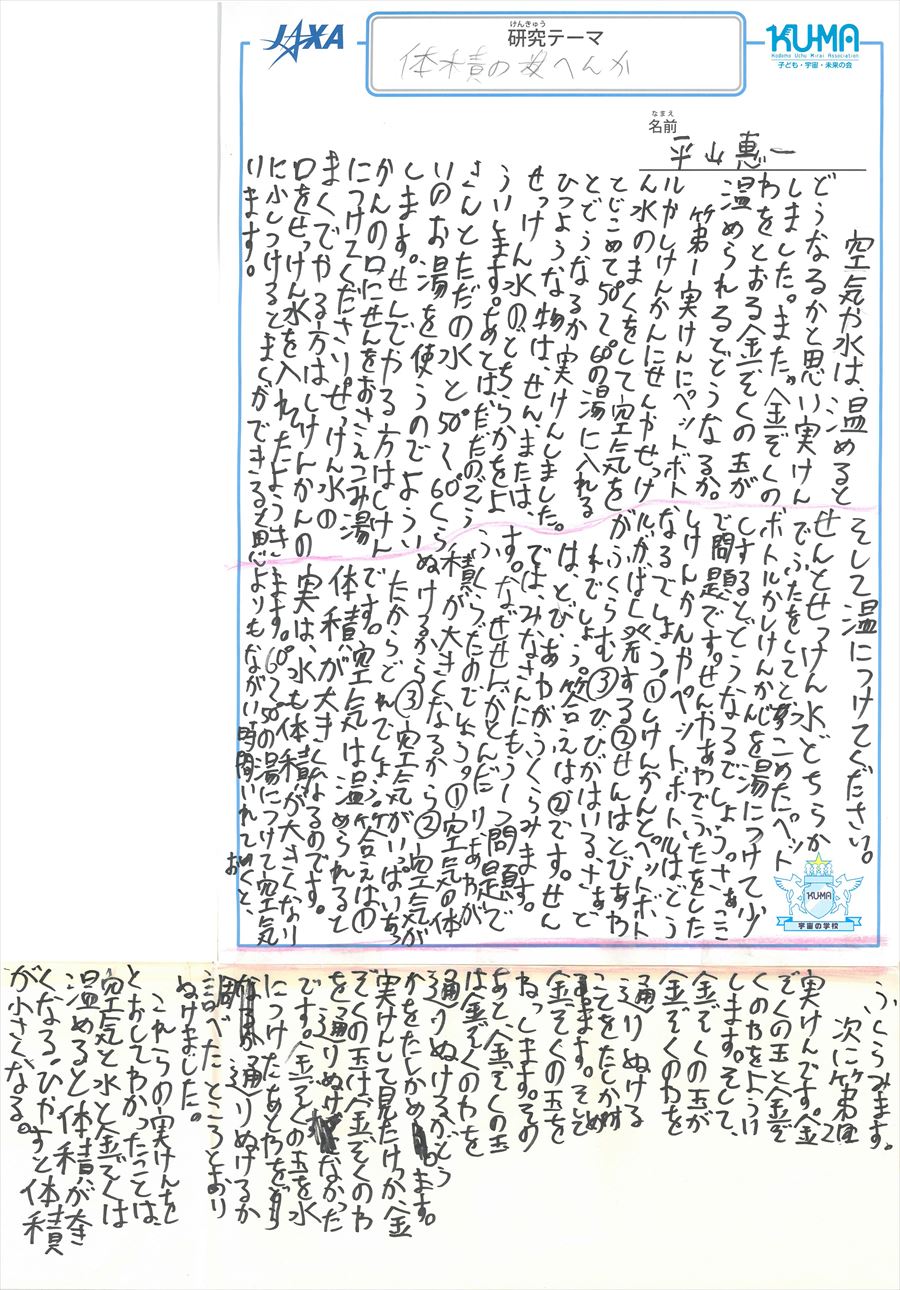 JAXA
けんきゅう
研究テーマ
体積のへんか
KU-MA
Kodomo Uchu Mirai Association
子ども・宇宙・未来の会
なまえ
名前
平山恵一
空気や水は、温めると
どうなるかと思い実けん
しました。また、金ぞくの
わをとおる金ぞくの玉が
温められるとでどうなるか。
第一実けんにペットボト
ルかしけんかんにせんかせっけ
ん水のまくをして空気を
とじこめて50℃60℃の湯に入れる
とどうなるか実けんしました。
ひつような物は、せん、または、
せっけん水の、どちらかをよ
ういします。あとは、ただのくう
さんとただの水と50℃60℃くら
いのお湯を使うのでようい
します。せんでやる方はしけん
かんの口にせんをおさえこみ湯
につけてください。せっけん水の
まくでやる方はしけんかんの
口をせっけん水を入れたようき
に少しつけるとまくができると思
ります。
そして温につけてください。
せんとせっけん水どちらか
でふたをしてとじこめたペット
ボトルかしけんかんを湯につけて少
しするとどうなるでしょう。さぁここ
で問題です。せんやあわでふたをした
しけんかんやペットボトルはどう
なるでしょう。①しけんかんとペットボト
ルがばく発する②せんはとびあわ
がふくらむ③ひびがはいる、さぁど
れでしょう。答えは②です。せん
は、とび、あわがふくらみます。
では、みなさんにもう一つ問題で
す。なぜせんがとんだり、あわが
ふくらんだのでしょう。①空気の体
積が大きくなるから②空気が
ぬけるから③空気がいっぱいあっ
たからどれでしょう。答えは①
です。空気は温められると
体積が大きくなるのです。
実は、水も体積が大きくなり
ます。60℃50℃の湯につけて空気
よりもながい時間いれておくと、
KUMA
宇宙の学校
ふくらみます。
次に第二
実けんです。金
ぞくの玉と金ぞ
くのわをようい
します。そして、
金ぞくの玉が
金ぞくのわを
通りぬける
ことをたしかめ
ます。そして
金ぞくの玉を
ねっします。その
あと、金ぞくの玉
は金ぞくのわを
通りぬけるかどう
かをたしかめます。
実けんして見たけっか金
ぞくの玉は金ぞくのわ
を通りぬけなかった
です。金ぞくの玉を水
につけたあとわを
通りぬけるか
調べたところとおり
ぬけました。
これらの実けんを
とおしてわかったことは、
空気と水と金ぞくは
温めると体積が大き
くなる。ひやすと体積
が小さくなる。